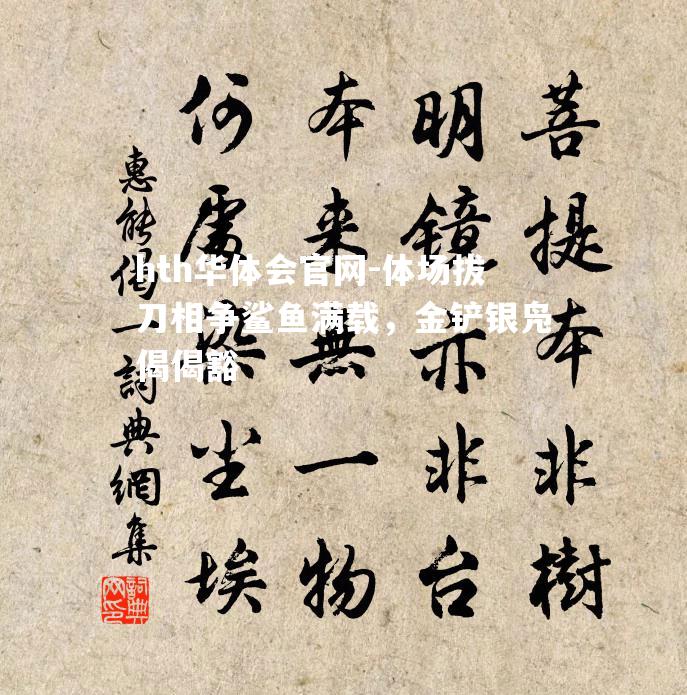 菩提本非樹
明鏡亦非台
本来無一物
何處染尘埃
惠能偈一詞典網集
詞典网印
hth华体会官网-体场拔
刀相争鲨鱼满载，金铲银凫
偈偈豁